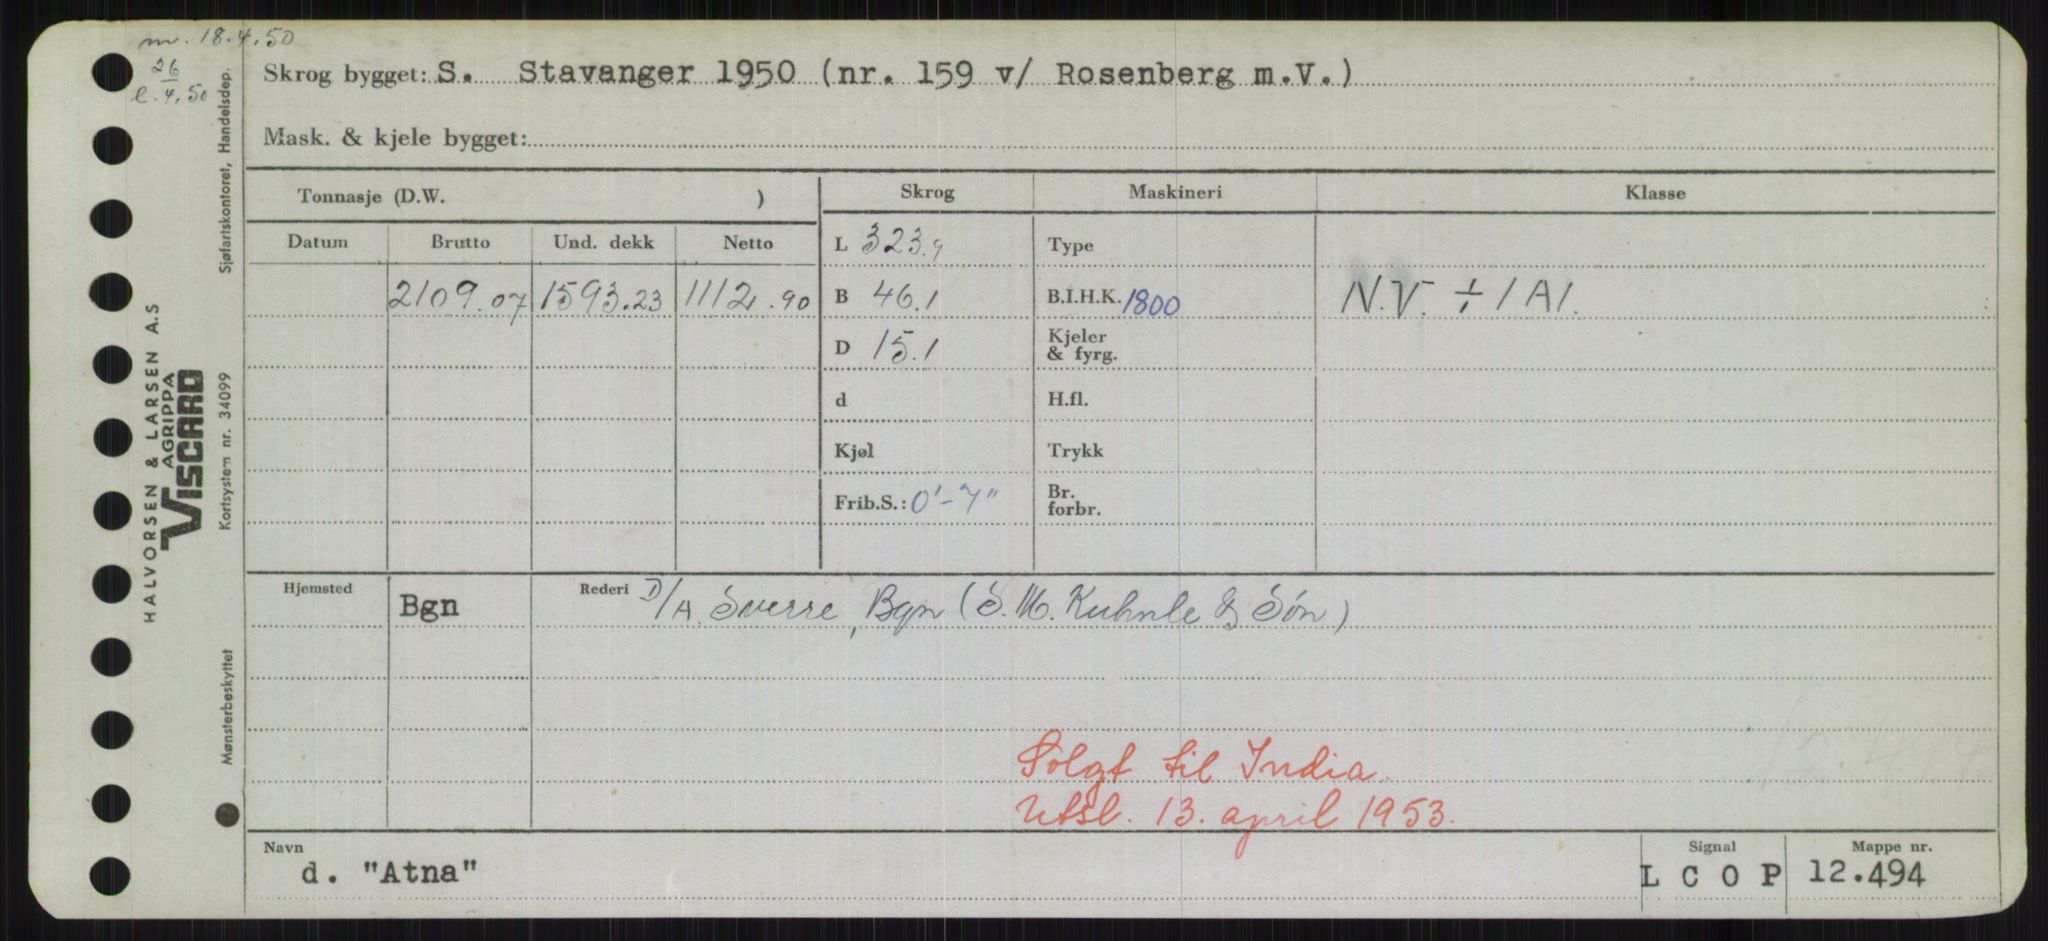 m. 18.4.50
26
l. 4.50
Skrog bygget: S. Stavanger 1950 (nr. 159 v/ Rosenberg m.V.)
Mask. & kjele bygget:
Tonnasje (D.W. )
Skrog Maskineri Klasse
Datum Brutto Und. dekk Netto
L 323.9 Type
2109.07 1593.23 1112.90
B 46.1 B.I.H.K. 1800 N.V. ÷ 1A1.
D 15.1 Kjeler & fyrg.
d H.fl.
Kjøl Trykk
Frib.S.: 0'-7" Br. forbr.
Hjemsted Bgn Rederi D/A. Sverre, Bgn (S. M. Kuhnle & Søn)
Solgt til India.
Utsl. 13. april 1953.
Navn Signal Mappe nr.
d. "Atna" L C O P 12.494
HALVORSEN & LARSEN A.S
AGRIPPA
VISCARD
Sjøfartskontoret, Handelsdep.
Kortsystem nr. 34099
Mønsterbeskyttet